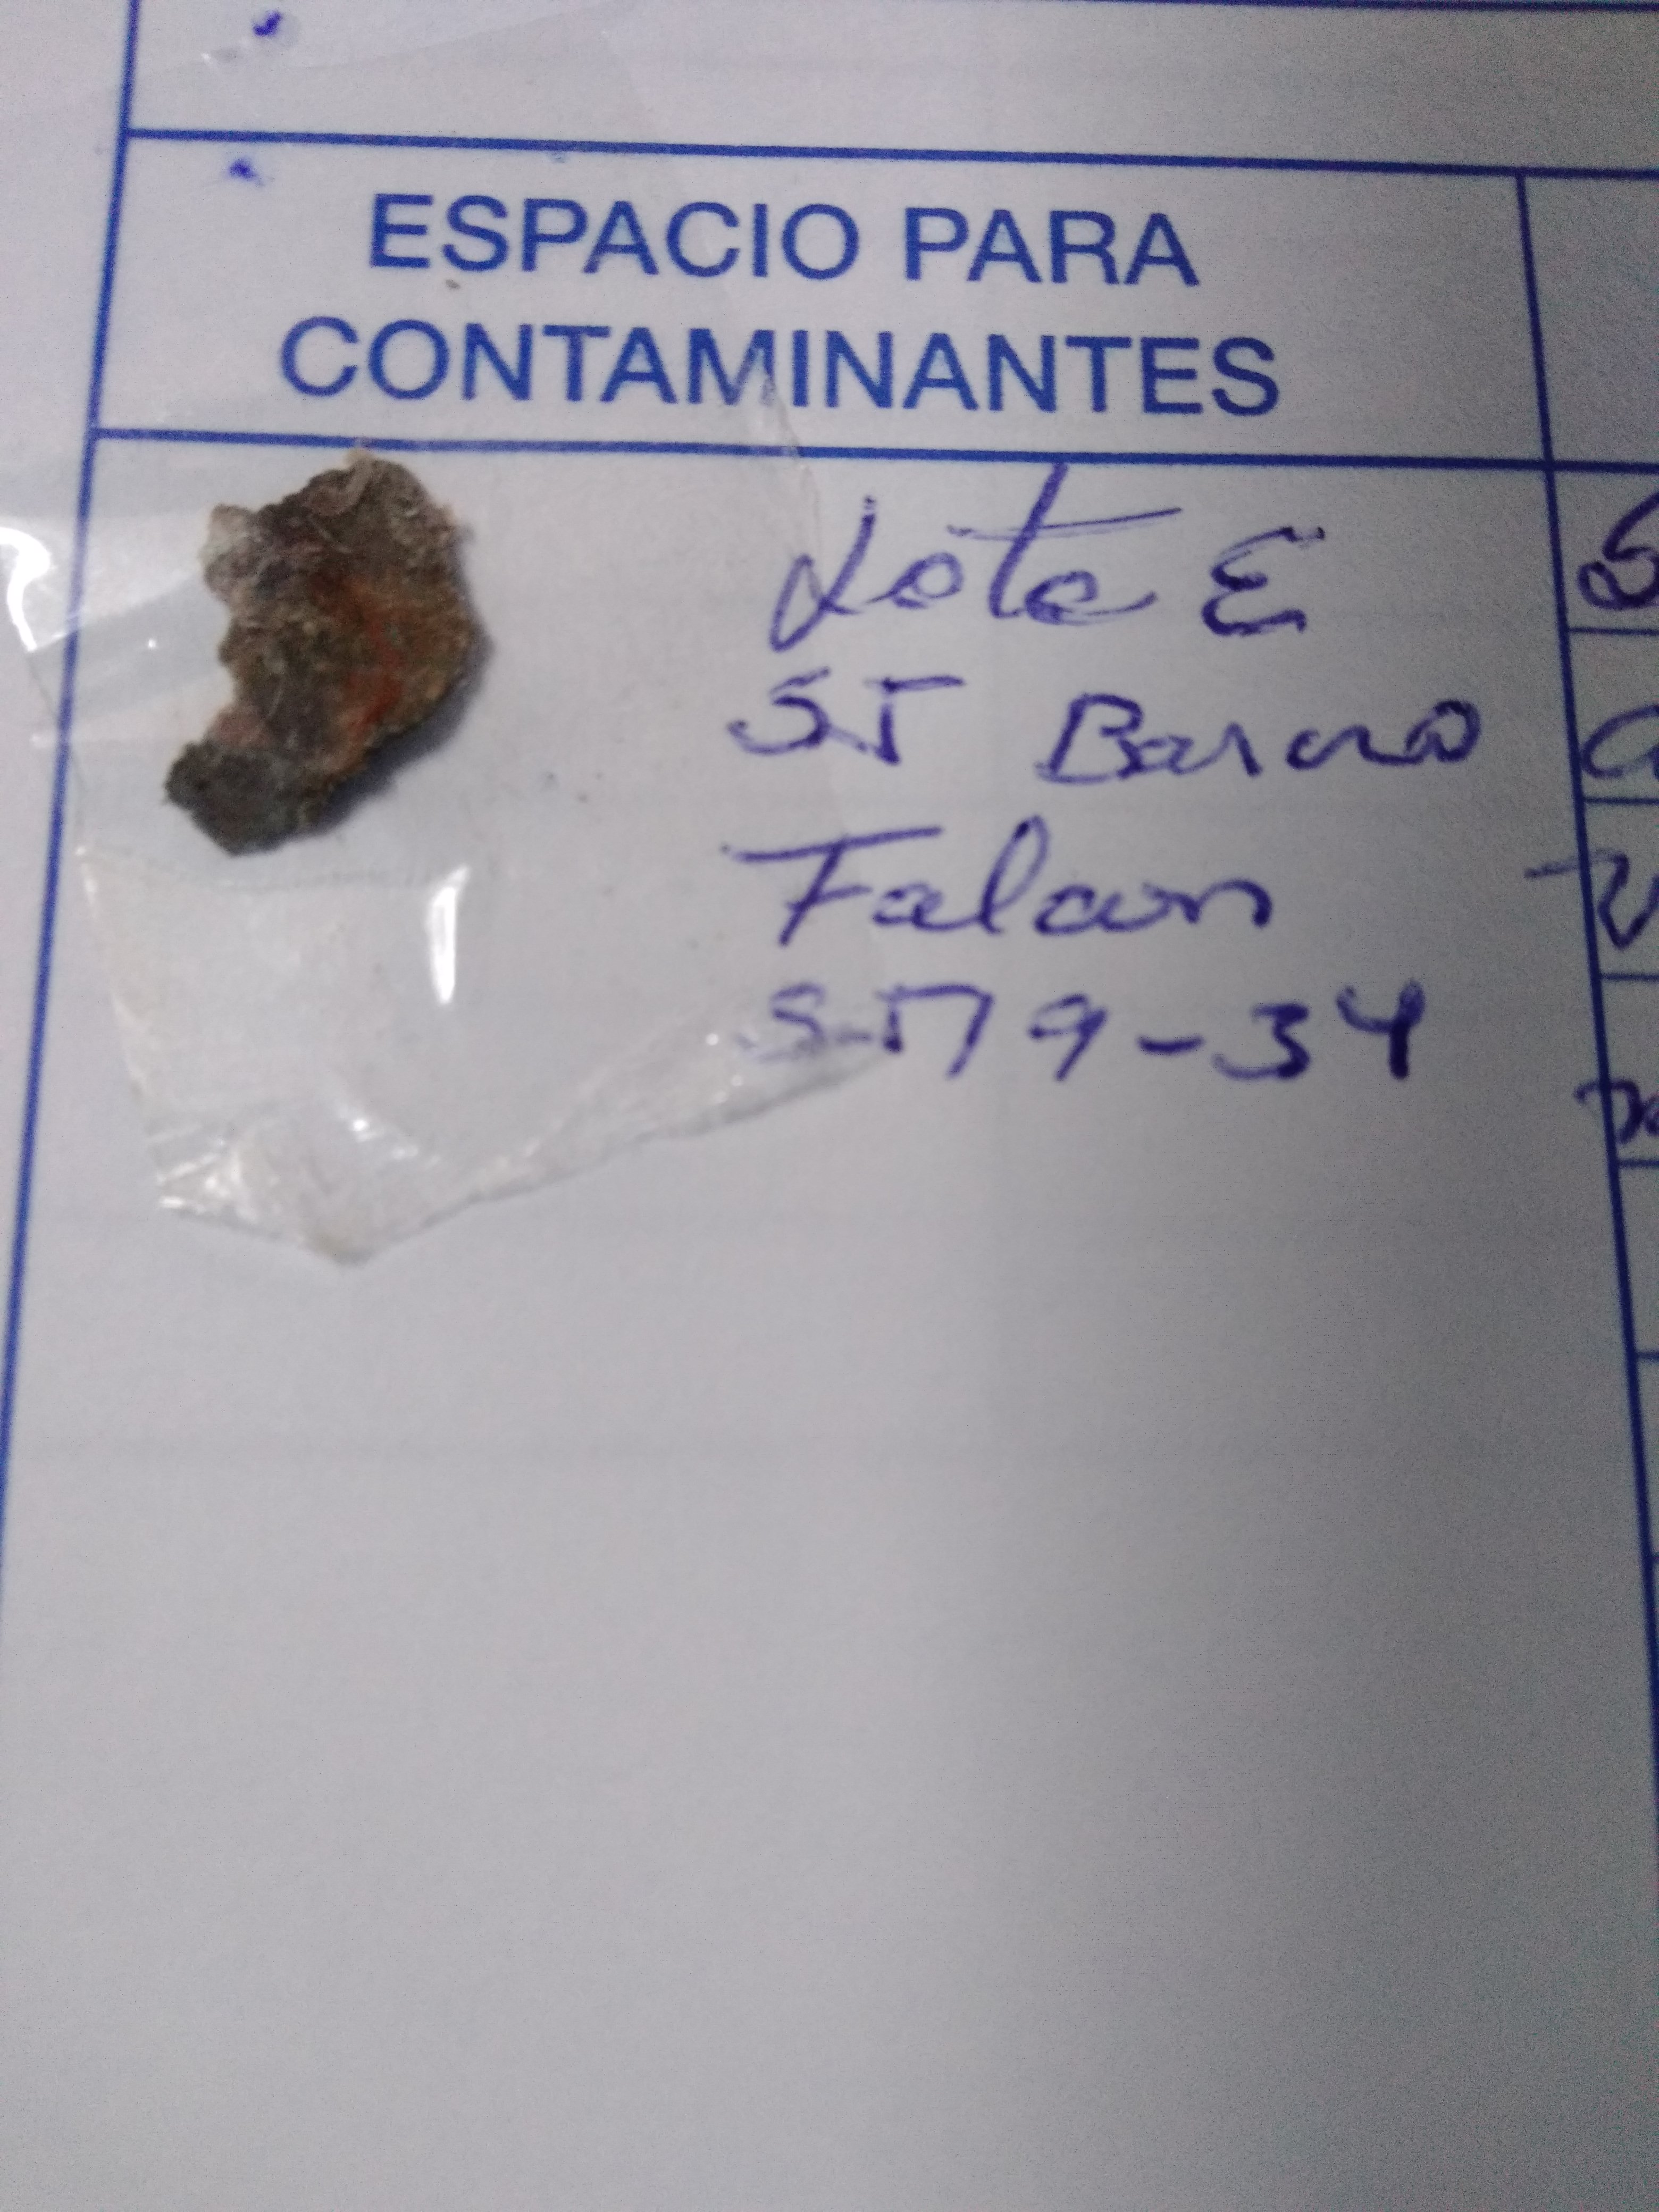 ESPACIO PARA
CONTAMINANTES
Lote E
ST Barcro
Falcon
9-34